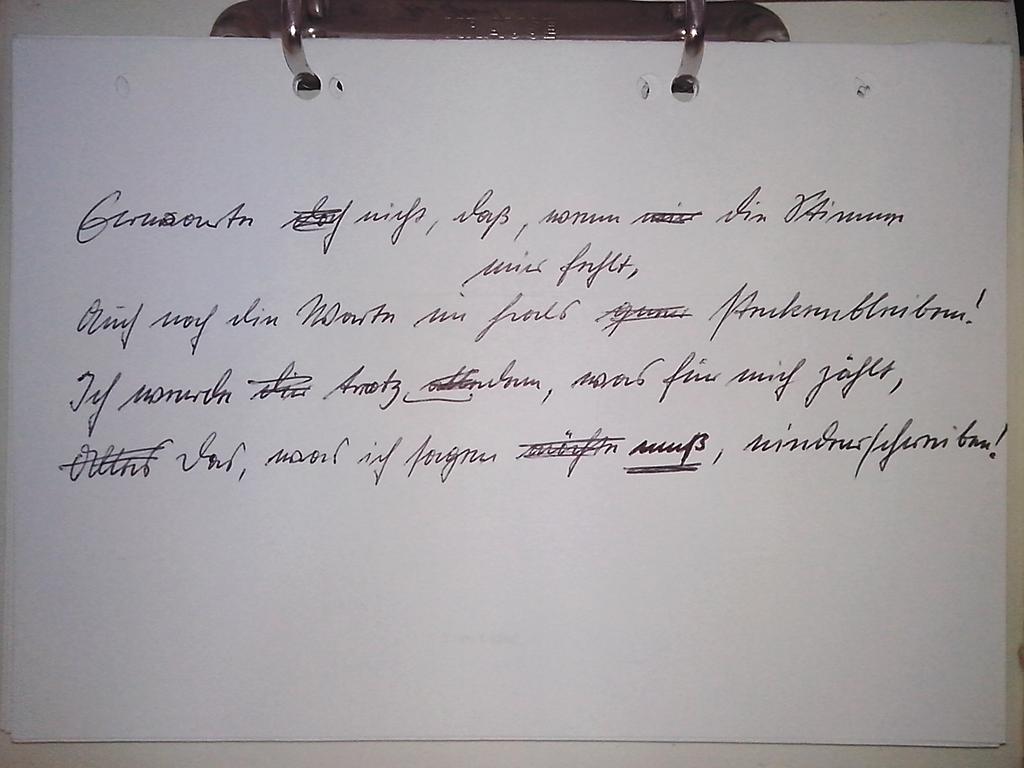 KRAUSE
Erwarte doch nicht, daß, wenn mir die Stimme
mir fehlt,
Auch noch die Worte im Hals steckenbleiben!
Ich werde die trotz alledem, was für mich zählt,
Alles Das, was ich sagen möchte muß, niederschreiben!